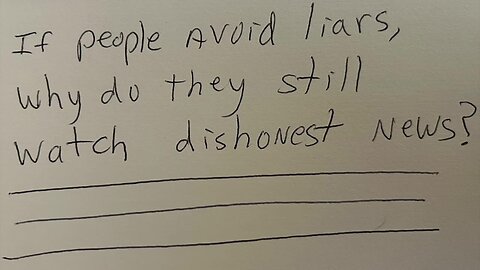 If people Avoid liars,
why do they still
watch dishonest news?